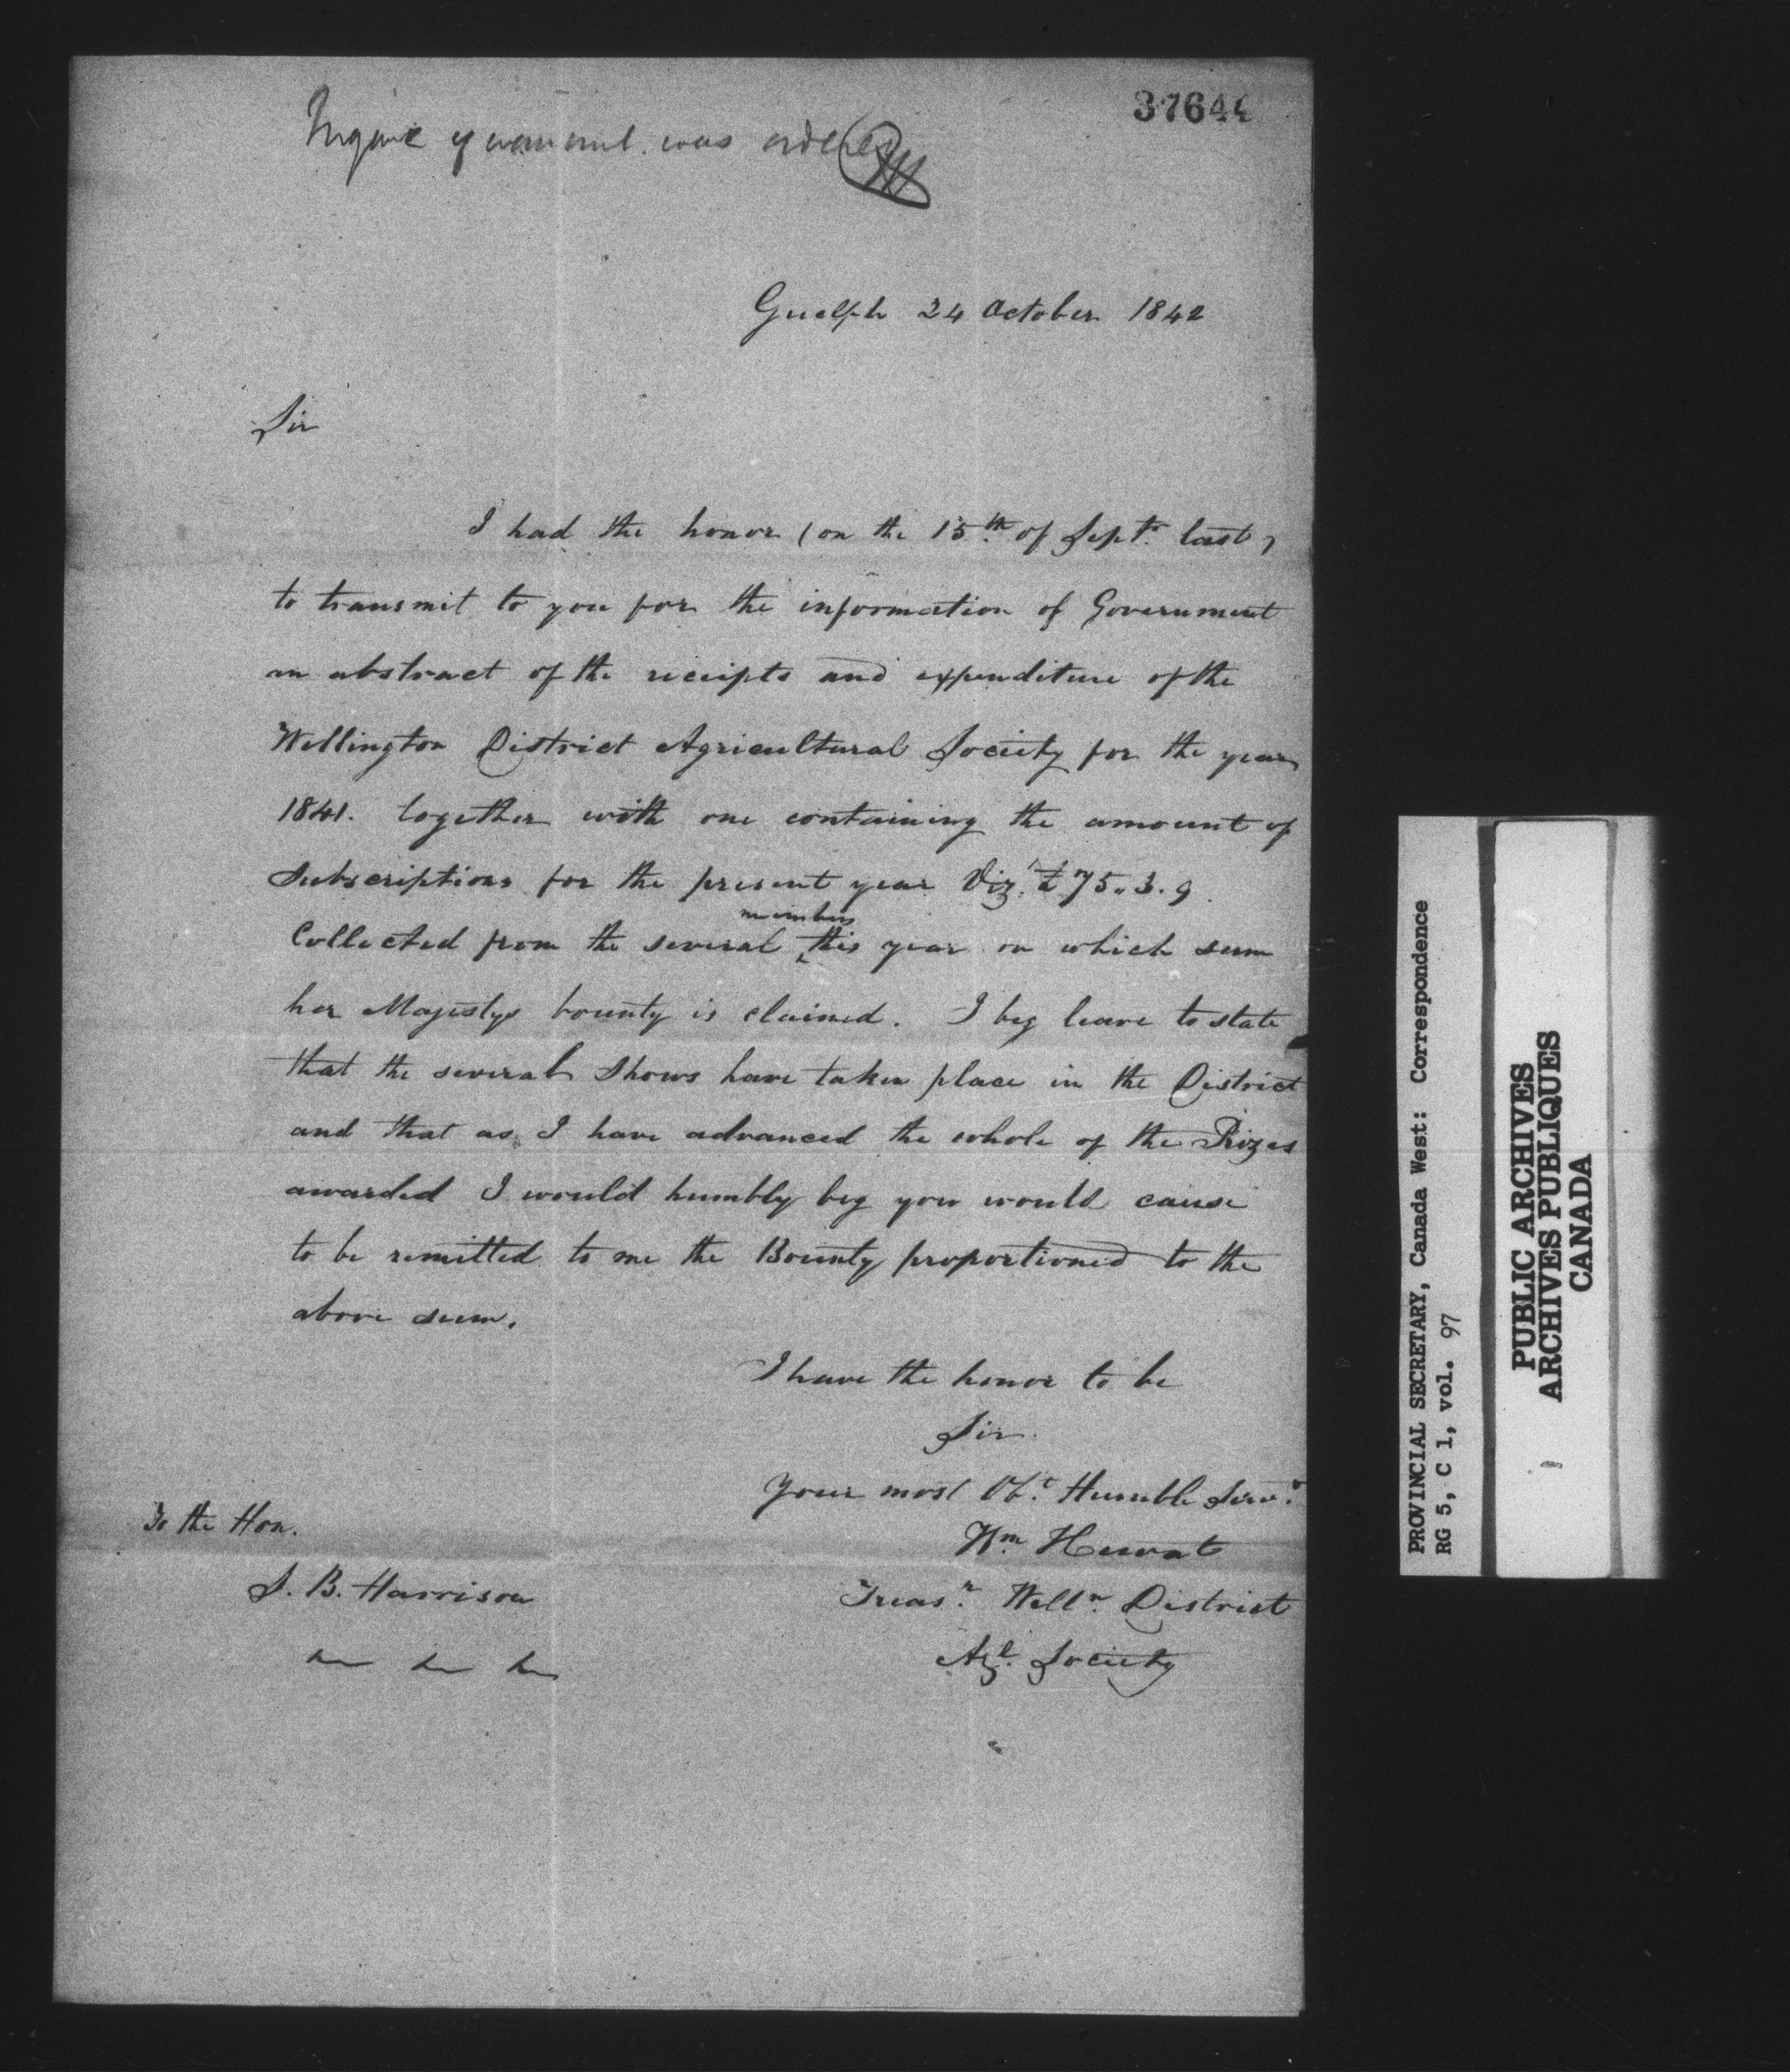 37644
Inquire if warrant was ordered
Guelph 24 October 1842
Sir
I had the honor (on the 15th of Septr last)
to transmit to you for the information of Government
an abstract of the receipts and expenditure of the
Wellington District Agricultural Society for the year
1841. together with one containing the amount of
Subscriptions for the present year Viz. £75.3.9
members
Collected from the several ‸ this year on which sum
her Majestys bounty is claimed. I beg leave to state
that the several Shows have taken place in the District
and that as I have advanced the whole of the Prizes
awarded I would humbly beg you would cause
to be remitted to me the Bounty proportioned to the
above sum.
I have the honor to be
Sir
Your most Obt Humble Servt
Wm Hewat
Treasr Welln District
Agl Society
To the Hon.
S. B. Harrison
PROVINCIAL SECRETARY, Canada West: Correspondence
RG 5, C 1, vol. 97
PUBLIC ARCHIVES
ARCHIVES PUBLIQUES
CANADA